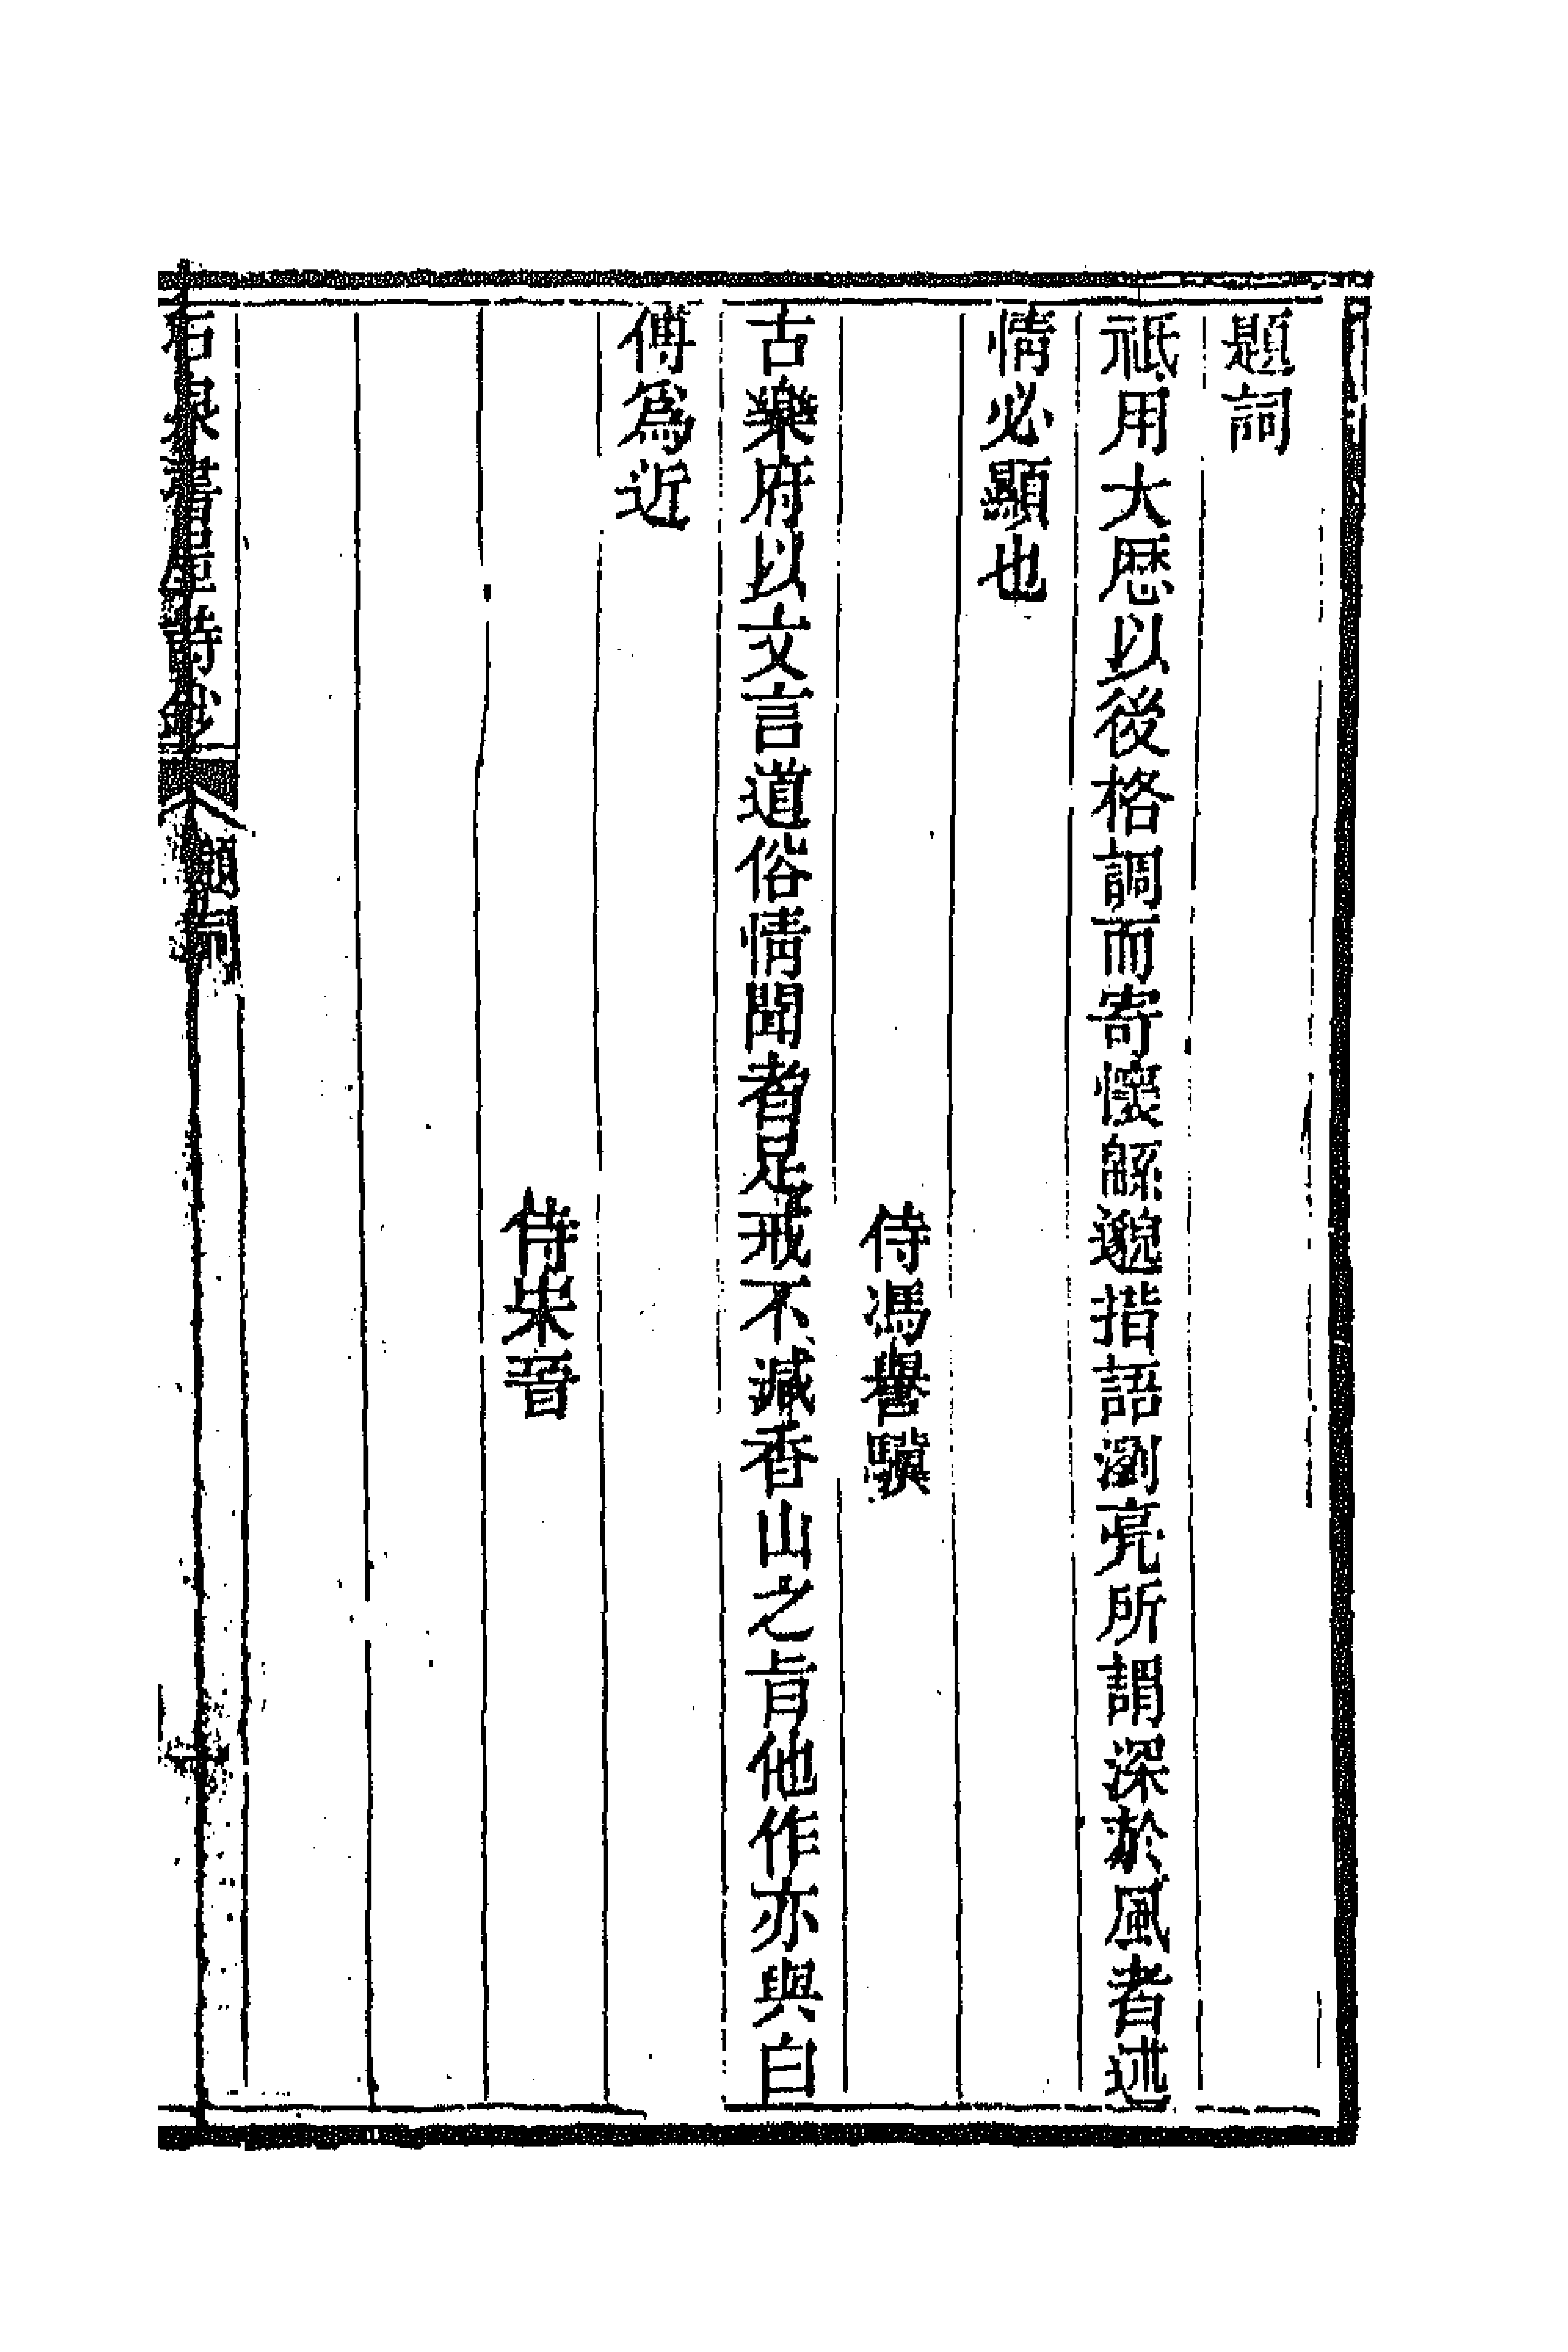 題詞
祇用大厯以後格調而寄懷緜邈措語瀏亮所謂深於風者述
情必顯也
侍馮譽驥
古樂府以文言道俗情聞者足戒不減香山之旨他作亦與白
傅爲近
侍宋晉
石泉書屋詩鈔
題詞